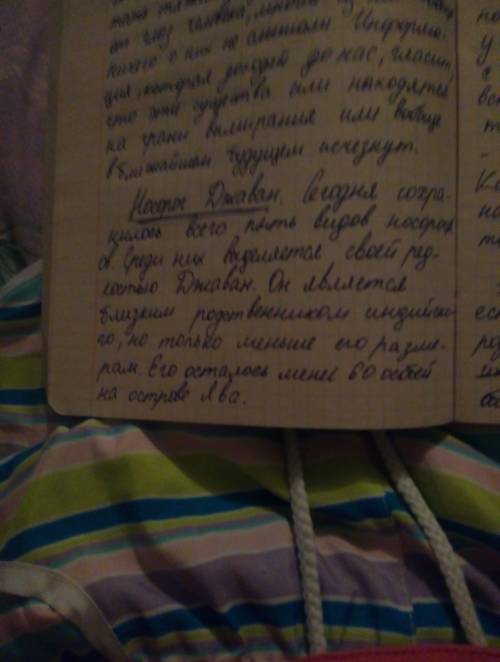 от глаз человека, многие из
ничего о них не слышали. Информа-
ция, которая доходит до нас, гласит,
что эти существа или находятся
на грани вымирания или вообще
в ближайшем будущем исчезнут.
Носорог Джаван. Сегодня сохра-
нилось всего пять видов носорогов
. Среди них выделяется своей ред-
костью Джаван. Он является
близким родственником индийско-
го, но только меньше его разме-
рам. Его осталось менее 60 особей
на острове Ява.